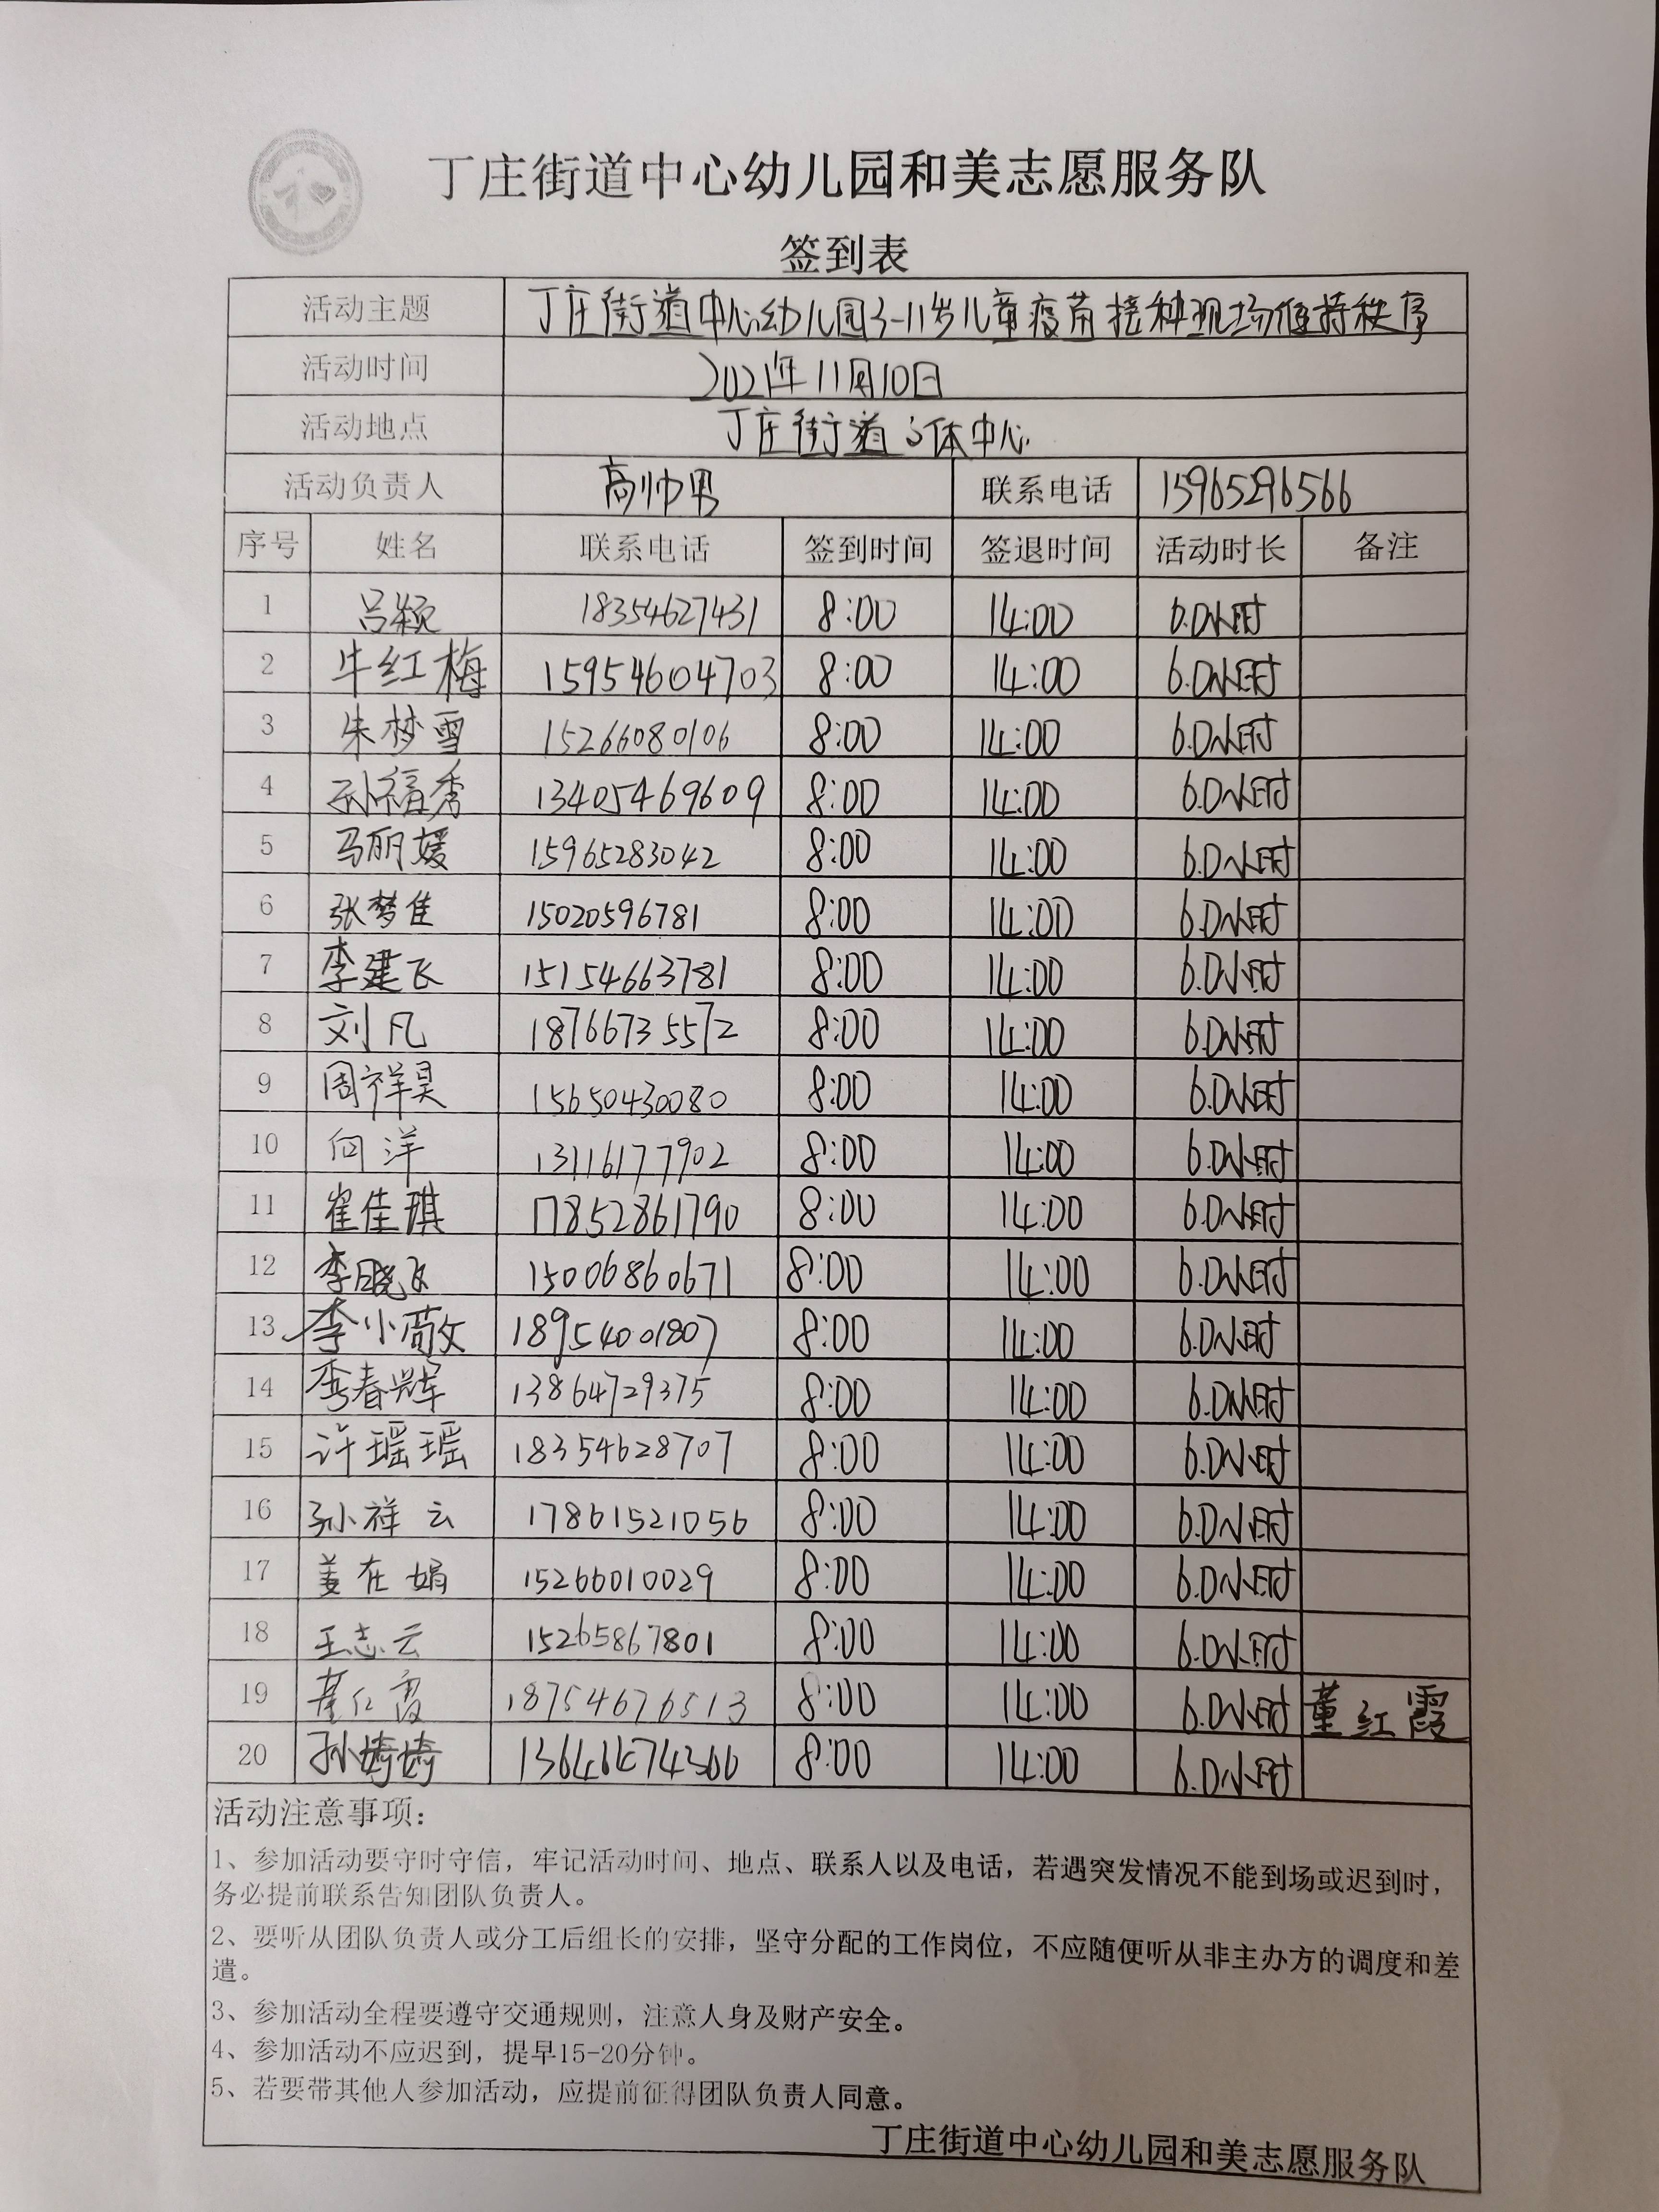 丁庄街道中心幼儿园和美志愿服务队
签到表
活动主题 丁庄街道中心幼儿园3-11岁儿童疫苗接种现场维持秩序
活动时间 2021年11月10日
活动地点 丁庄街道文体中心
活动负责人 高帅男 联系电话 15965296566
序号 姓名 联系电话 签到时间 签退时间 活动时长 备注
1 吕颖 18354627431 8:00 14:00 6.0小时
2 牛红梅 15954604703 8:00 14:00 6.0小时
3 朱梦雪 15266080106 8:00 14:00 6.0小时
4 孙福秀 13405469609 8:00 14:00 6.0小时
5 马丽媛 15965283042 8:00 14:00 6.0小时
6 张梦佳 15020596781 8:00 14:00 6.0小时
7 李建飞 15154663781 8:00 14:00 6.0小时
8 刘凡 18766735572 8:00 14:00 6.0小时
9 周祥昊 15650430080 8:00 14:00 6.0小时
10 向洋 13116177902 8:00 14:00 6.0小时
11 崔佳琪 17852861790 8:00 14:00 6.0小时
12 李晓飞 15006860671 8:00 14:00 6.0小时
13 李小敬 18954001807 8:00 14:00 6.0小时
14 李春辉 13864729375 8:00 14:00 6.0小时
15 许瑶瑶 18354628707 8:00 14:00 6.0小时
16 孙祥云 17861521056 8:00 14:00 6.0小时
17 姜在娟 15266010029 8:00 14:00 6.0小时
18 王志云 15265867801 8:00 14:00 6.0小时
19 董红霞 18754676513 8:00 14:00 6.0小时 董红霞
20 孙婍婍 8:00 14:00 6.0小时
活动注意事项：
1、参加活动要守时守信，牢记活动时间、地点、联系人以及电话，若遇突发情况不能到场或迟到时，
务必提前联系告知团队负责人。
2、要听从团队负责人或分工后组长的安排，坚守分配的工作岗位，不应随便听从非主办方的调度和差
遣。
3、参加活动全程要遵守交通规则，注意人身及财产安全。
4、参加活动不应迟到，提早15-20分钟。
5、若要带其他人参加活动，应提前征得团队负责人同意。
丁庄街道中心幼儿园和美志愿服务队